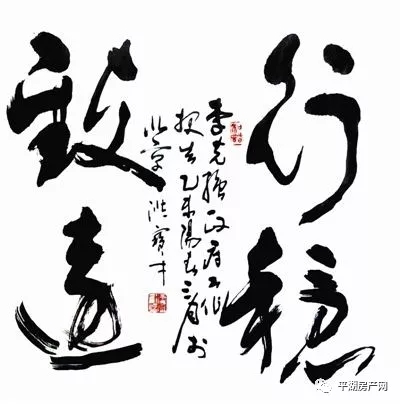 行稳
致远
李克强政府工作
报告乙未阳春三月于
北京 洪宝才
平湖房产网